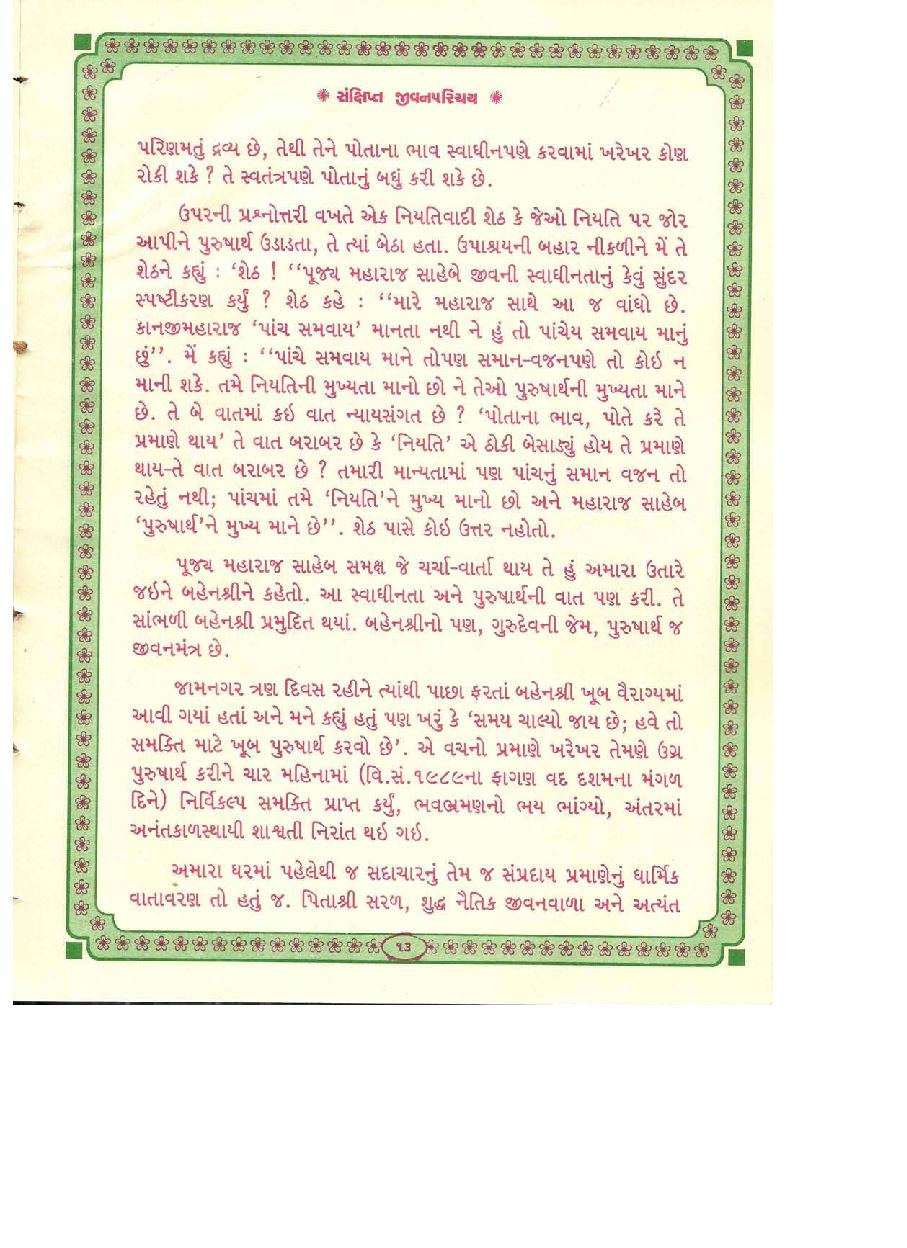 ❋ સંક્ષિપ્ત જીવનપરિચય ❋
પરિણમતું દ્રવ્ય છે, તેથી તેને પોતાના ભાવ સ્વાધીનપણે કરવામાં ખરેખર કોણ
રોકી શકે ? તે સ્વતંત્રપણે પોતાનું બધું કરી શકે છે.
ઉપરની પ્રશ્નોત્તરી વખતે એક નિયતિવાદી શેઠ કે જેઓ નિયતિ પર જોર
આપીને પુરુષાર્થ ઉડાડતા, તે ત્યાં બેઠા હતા. ઉપાશ્રયની બહાર નીકળીને મેં તે
શેઠને કહ્યું : ‘શેઠ ! ‘‘પૂજ્ય મહારાજ સાહેબે જીવની સ્વાધીનતાનું કેવું સુંદર
સ્પષ્ટીકરણ કર્યું ? શેઠ કહે : ‘‘મારે મહારાજ સાથે આ જ વાંધો છે.
કાનજીમહારાજ ‘પાંચ સમવાય’ માનતા નથી ને હું તો પાંચેય સમવાય માનું
છું’’. મેં કહ્યું : ‘‘પાંચે સમવાય માને તોપણ સમાન-વજનપણે તો કોઇ ન
માની શકે. તમે નિયતિની મુખ્યતા માનો છો ને તેઓ પુરુષાર્થની મુખ્યતા માને
છે. તે બે વાતમાં કઇ વાત ન્યાયસંગત છે ? ‘પોતાના ભાવ, પોતે કરે તે
પ્રમાણે થાય’ તે વાત બરાબર છે કે ‘નિયતિ’ એ ઠોકી બેસાડ્યું હોય તે પ્રમાણે
થાય-તે વાત બરાબર છે ? તમારી માન્યતામાં પણ પાંચનું સમાન વજન તો
રહેતું નથી; પાંચમાં તમે ‘નિયતિ’ને મુખ્ય માનો છો અને મહારાજ સાહેબ
‘પુરુષાર્થ’ને મુખ્ય માને છે’’. શેઠ પાસે કોઇ ઉત્તર નહોતો.
પૂજ્ય મહારાજ સાહેબ સમક્ષ જે ચર્ચા-વાર્તા થાય તે હું અમારા ઉતારે
જઇને બહેનશ્રીને કહેતો. આ સ્વાધીનતા અને પુરુષાર્થની વાત પણ કરી. તે
સાંભળી બહેનશ્રી પ્રમુદિત થયાં. બહેનશ્રીનો પણ, ગુરુદેવની જેમ, પુરુષાર્થ જ
જીવનમંત્ર છે.
જામનગર ત્રણ દિવસ રહીને ત્યાંથી પાછા ફરતાં બહેનશ્રી ખૂબ વૈરાગ્યમાં
આવી ગયાં હતાં અને મને કહ્યું હતું પણ ખરું કે ‘સમય ચાલ્યો જાય છે; હવે તો
સમકિત માટે ખૂબ પુરુષાર્થ કરવો છે’. એ વચનો પ્રમાણે ખરેખર તેમણે ઉગ્ર
પુરુષાર્થ કરીને ચાર મહિનામાં (વિ.સં.૧૯૮૯ના ફાગણ વદ દશમના મંગળ
દિને) નિર્વિકલ્પ સમકિત પ્રાપ્ત કર્યું, ભવભ્રમણનો ભય ભાંગ્યો, અંતરમાં
અનંતકાળસ્થાયી શાશ્વતી નિરાંત થઇ ગઇ.
અમારા ઘરમાં પહેલેથી જ સદાચારનું તેમ જ સંપ્રદાય પ્રમાણેનું ધાર્મિક
વાતાવરણ તો હતું જ. પિતાશ્રી સરળ, શુદ્ધ નૈતિક જીવનવાળા અને અત્યંત
૧૩